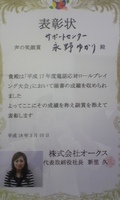 表彰状
サポートセンター
声の花銅賞
永野ゆかり 殿
貴殿は「平成17年度電話応対ロールプレ
イング大会」において頭書の成績を収められま
した
よってここにその成績を称え副賞を添えて
表彰します
平成18年3月10日
株式会社オークス
代表取締役社長